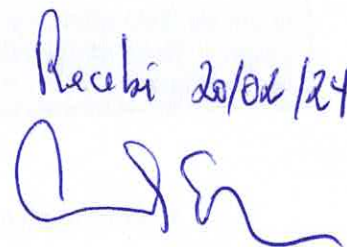 Recebi 20/02/24